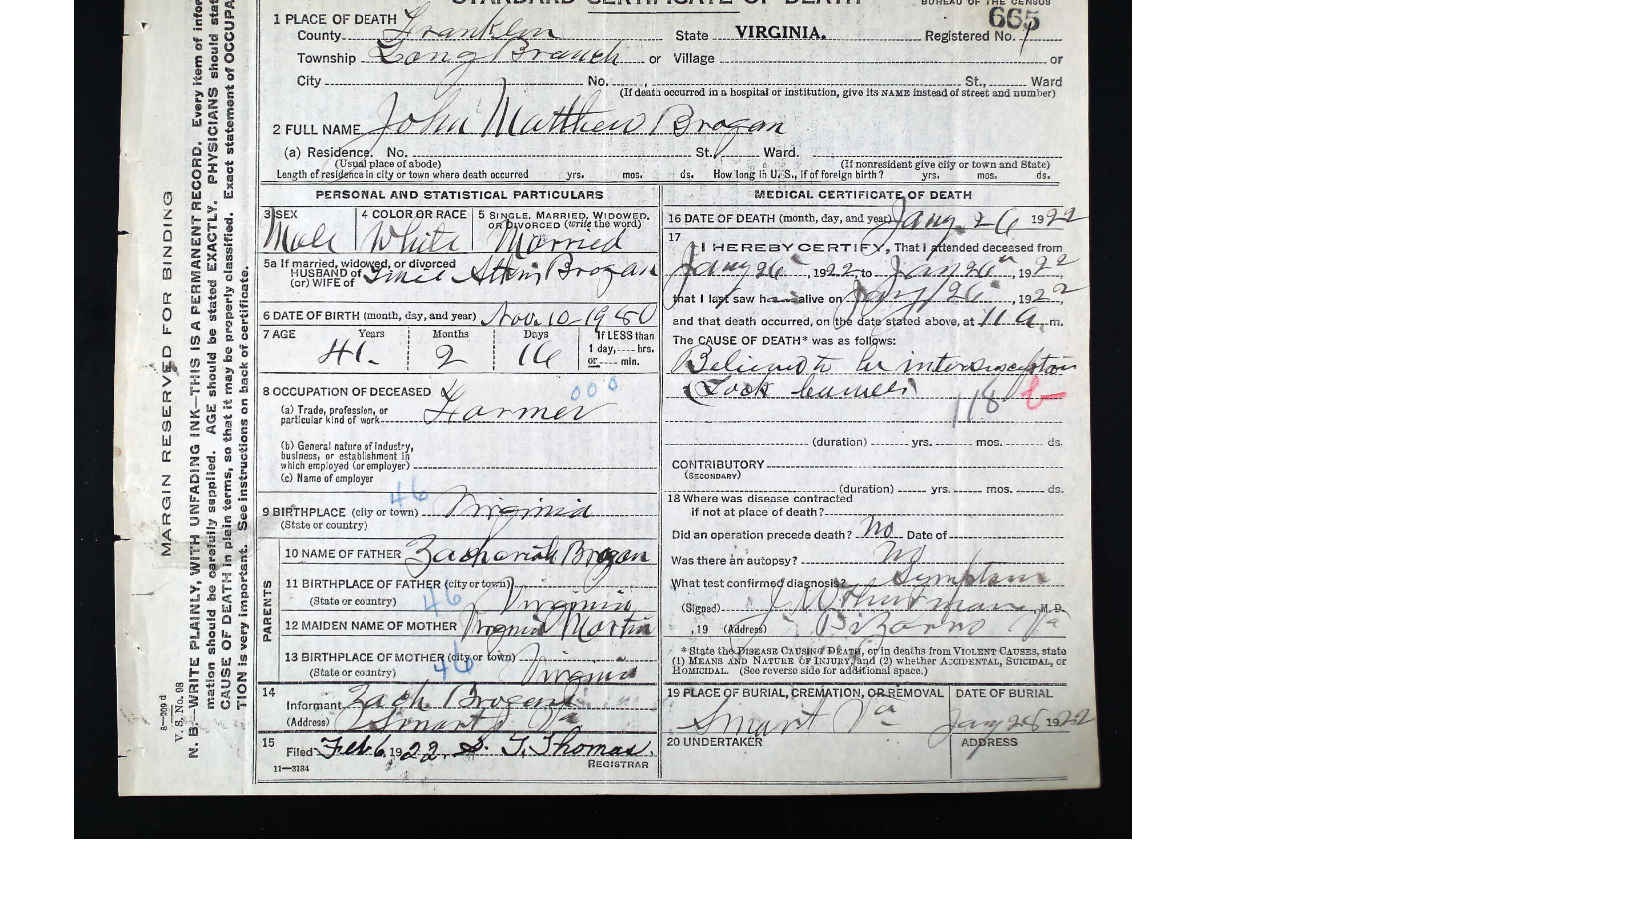 STANDARD CERTIFICATE OF DEATH
BUREAU OF THE CENSUS
665
1 PLACE OF DEATH
County Franklin State VIRGINIA. Registered No. 1
Township Long Branch or Village or
City No. St., Ward
(If death occurred in a hospital or institution, give its NAME instead of street and number)
2 FULL NAME John Matthew Brogan
(a) Residence. No. St., Ward.
(Usual place of abode) (If nonresident give city or town and State)
Length of residence in city or town where death occurred yrs. mos. ds. How long in U. S., if of foreign birth? yrs. mos. ds.
PERSONAL AND STATISTICAL PARTICULARS
3 SEX 4 COLOR OR RACE 5 SINGLE, MARRIED, WIDOWED,
OR DIVORCED (write the word)
Male White Married
5a If married, widowed, or divorced
HUSBAND of
(or) WIFE of Brogan
6 DATE OF BIRTH (month, day, and year) Nov. 10-1980
7 AGE Years Months Days If LESS than
1 day,---- hrs.
or---- min.
41- 2 16
8 OCCUPATION OF DECEASED
000
(a) Trade, profession, or
particular kind of work Farmer
(b) General nature of industry,
business, or establishment in
which employed (or employer)
(c) Name of employer
46
9 BIRTHPLACE (city or town) Virginia
(State or country)
PARENTS
10 NAME OF FATHER Zachariah Brogan
11 BIRTHPLACE OF FATHER (city or town)
(State or country) 46 Virginia
12 MAIDEN NAME OF MOTHER Virginia Martin
13 BIRTHPLACE OF MOTHER (city or town)
46
(State or country) Virginia
14
Informant Zach. Brogan
(Address) Va
15
Filed Feb 6, 1922. S. T. Thomas.
REGISTRAR
11—3184
MEDICAL CERTIFICATE OF DEATH
16 DATE OF DEATH (month, day, and year) Jany. 26 1922
17
I HEREBY CERTIFY, That I attended deceased from
Jany 26, 1922, to Jany 26, 1922,
that I last saw h alive on Jany 26, 1922,
and that death occurred, on the date stated above, at 11 a. m.
The CAUSE OF DEATH* was as follows:
Believed to be intersusception
Lock bowels
118 b
(duration) yrs. mos. ds.
CONTRIBUTORY
(SECONDARY)
(duration) yrs. mos. ds.
18 Where was disease contracted
if not at place of death?
Did an operation precede death? No Date of
Was there an autopsy? No
What test confirmed diagnosis? Symptoms
(Signed) J. , M. D.
, 19 (Address) Pizarro Va
* State the DISEASE CAUSING DEATH, or in deaths from VIOLENT CAUSES, state
(1) MEANS AND NATURE OF INJURY, and (2) whether ACCIDENTAL, SUICIDAL, or
HOMICIDAL. (See reverse side for additional space.)
19 PLACE OF BURIAL, CREMATION, OR REMOVAL DATE OF BURIAL
Smart Va Jany 28 1922
20 UNDERTAKER ADDRESS
MARGIN RESERVED FOR BINDING
8—209 d
V. S. No. 98
N. B.—WRITE PLAINLY, WITH UNFADING INK—THIS IS A PERMANENT RECORD. Every item of infor
mation should be carefully supplied. AGE should be stated EXACTLY. PHYSICIANS should stat
CAUSE OF DEATH in plain terms, so that it may be properly classified. Exact statement of OCCUPA
TION is very important. See instructions on back of certificate.